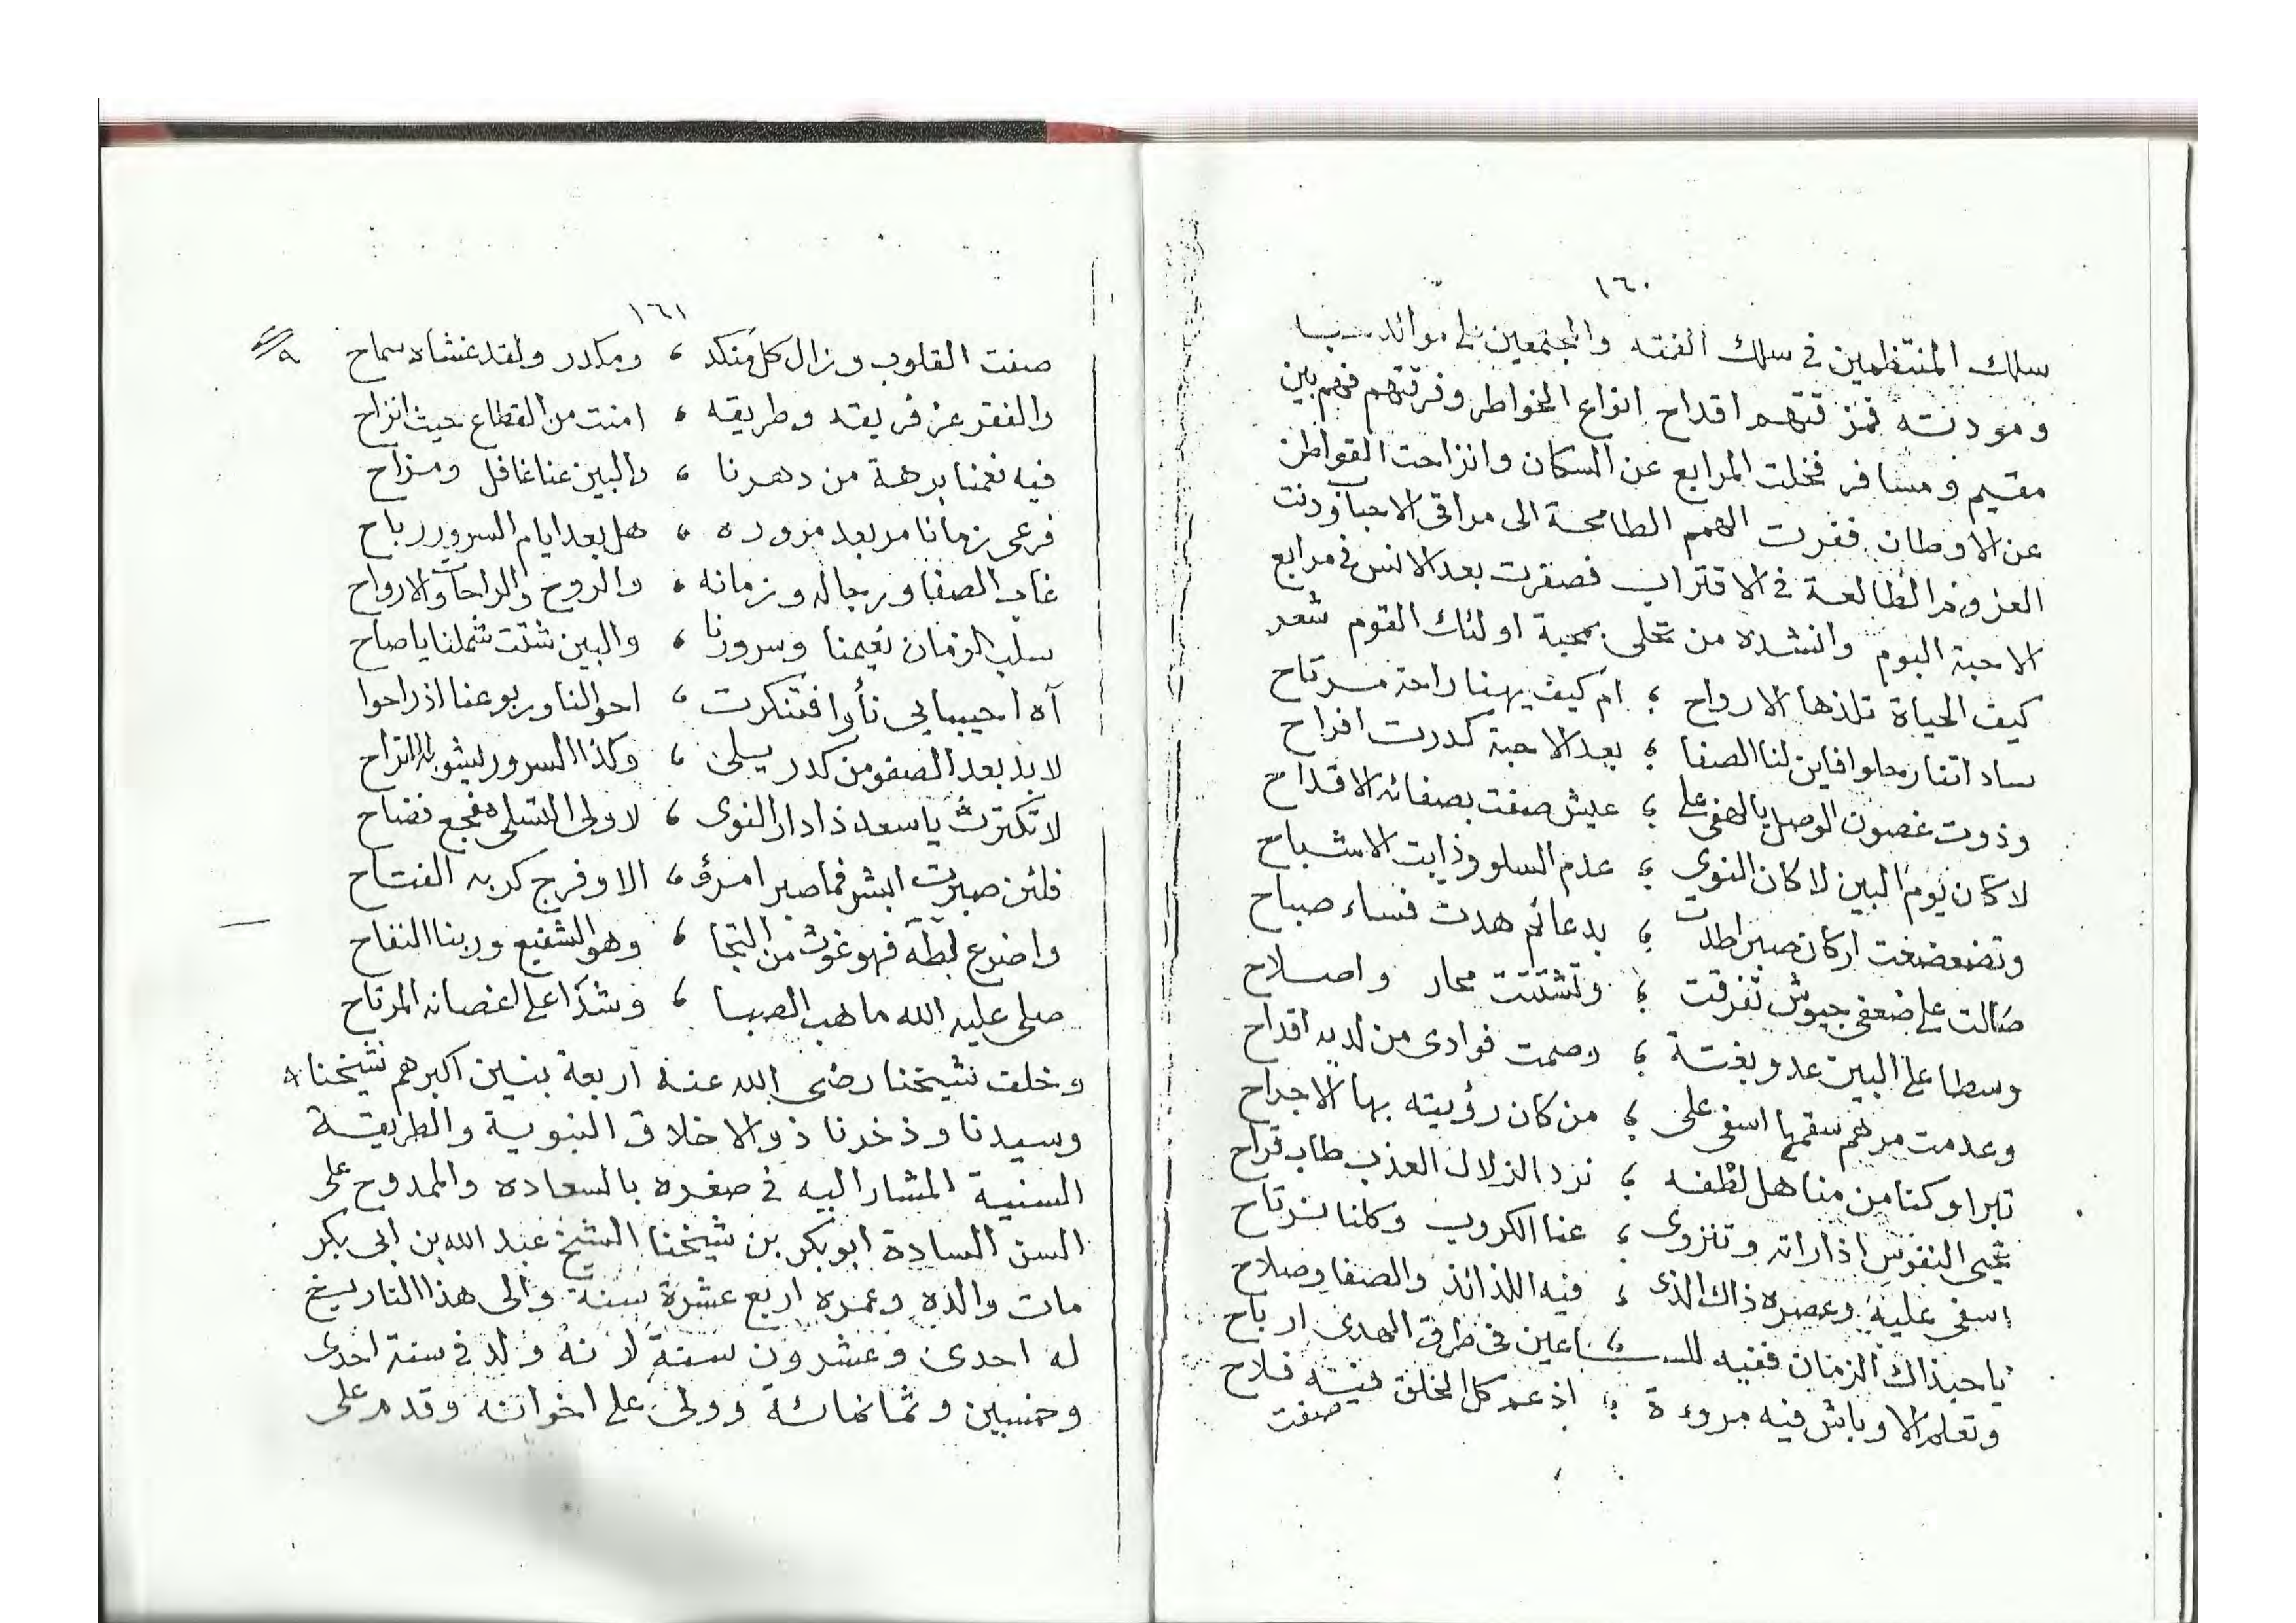 ١٦٠
سلك المنتظمين في سلك الفقه والمجتمعين على موائد
ومودته فمزقتهم اقداح انواع الخواطر وفرقتهم فهم بين
مقيم ومسافر فخلت المرابع عن السكان وانزاحت القواطن
عن الاوطان ففرت الهمم الطامحة الى مراقي الاحبا ودنت
العزوفر الطالعة في الاقتراب فصفرت بعد الانس في مرابع
الاحبة البوم وانشده من تحلى بمحبة اولئك القوم شعر
كيف الحياة تلذها الارواح ؛ ام كيف يهنا راحة مرتاح
ساداتنا رحلوا فاين لنا الصفا ؛ بعد الاحبة كدرت افراح
وذوت غصون الوصل يالهفي على ؛ عيش صفت بصفائه الاقداح
لا كان يوم البين لا كان النوى ؛ عدم السلو وذابت الاشباح
وتضعضعت اركان صبر اطدت ؛ بدعائم هدت فساء صباح
صالت على ضعفي جيوش تفرقت ؛ وتشتتت محار واصلاح
وسطا على البين عدو بغتة ؛ وصمت فوادي من لديه اقداح
وعدمت مرهم سقمها اسفي على ؛ من كان رؤيته بها الاجراح
تبرا وكنا من مناهل لطفه ؛ نرد الزلال العذب طاب قراح
تحيى النفوس اذا راته وتنزوى ؛ عنا الكروب وكلنا نرتاح
اسفي عليه وعصره ذاك الذي ؛ فيه اللذائذ والصفا وصلاح
يا حبذاك الزمان ففيه للساعين في طرق الهدى ارباح
وتعلم الاوباش فيه مروءة ؛ اذ عم كل الخلق فيه فلاح
صفت
١٦١
صفت القلوب وزال كل منكد ، ومكدر ولقد غشاه سماح
والفقر عز فريقه وطريقه ، امنت من القطاع حيث انزاح
فيه نعمنا برهة من دهرنا ، والبين عنا غافل ومزاح
فرعى زمانا مر بعد مروره ، هل بعد ايام السرور رباح
غاب الصفا ورجاله وزمانه ، والروح والراحات والارواح
سلب الزمان نعيمنا وسرورنا ، والبين شتت شملنا يا صاح
آه احيبابي نأوا فتنكرت ، احوالنا وربوعنا اذ راحوا
لابد بعد الصفو من كدر يسلى ، وكذا السرور يشوبه اتراح
لا تكترث يا سعد ذا دار النوى ، لا ولى التسلى مفجع فضاح
فلئن صبرت ابشر فما صبر امرؤ ، الا وفرج كربه الفتاح
واضرع لطه فهو غوث من التجا ، وهو الشفيع وربنا النفاح
صلى عليه الله ما هب الصبا ، وشدا على اغصانه المرتاح
وخلف شيخنا رضى الله عنه اربعة بنين اكبرهم شيخنا
وسيدنا وذخرنا ذو الاخلاق النبوية والطريقة
السنية المشار اليه في صغره بالسعاده والممدوح على
السن السادة ابو بكر بن شيخنا الشيخ عبد الله بن ابي بكر
مات والده وعمره اربع عشرة سنة والى هذا التاريخ
له احدى وعشرون سنة لانه ولد في سنة احدى
وخمسين وثمانمائة وولى على اخوانه وقدم على